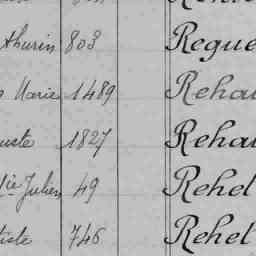 thurin 803 Regue
Marie 1489 Reha
uste 1827 Reha
Cie Julien 49 Rehel
tiste 746 Rehel